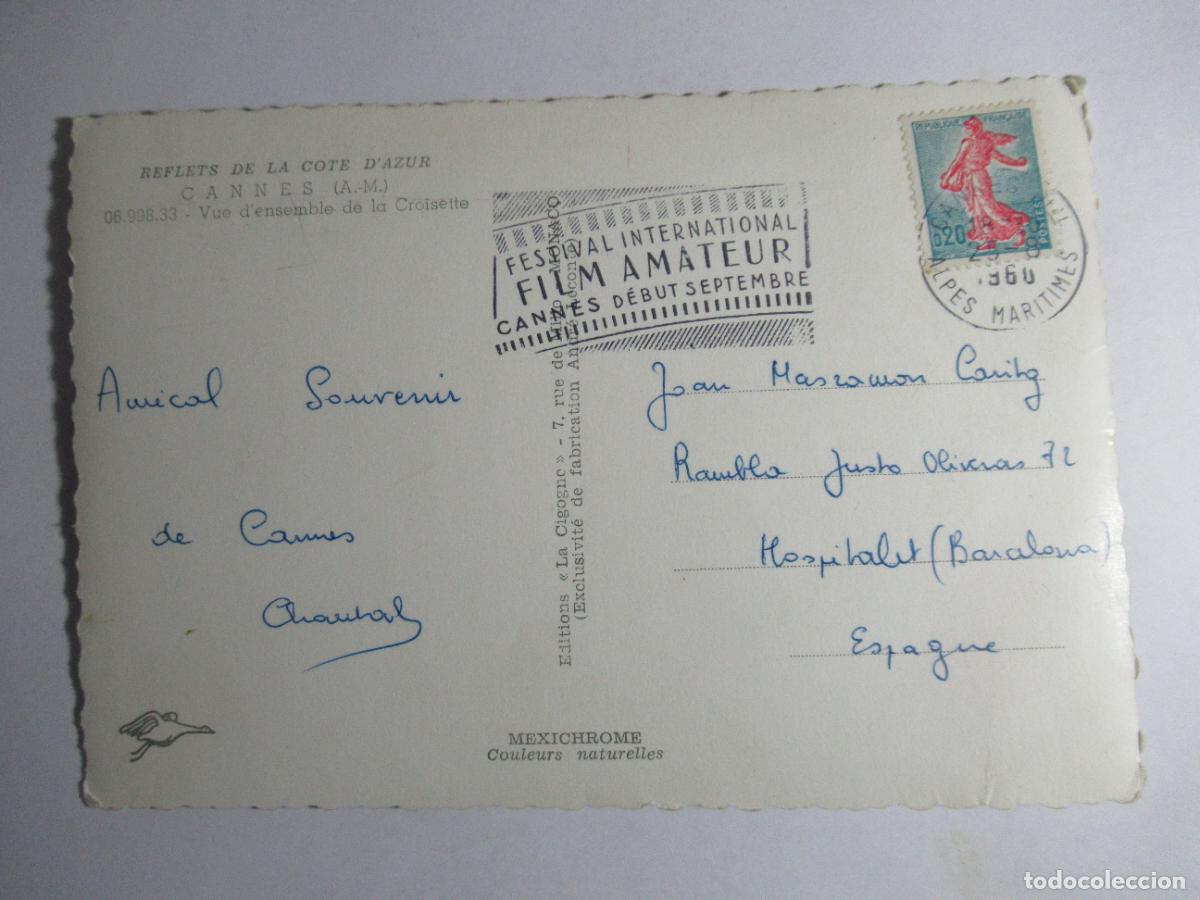 REFLETS DE LA COTE D'AZUR
CANNES (A.-M.)
06.998.33 - Vue d'ensemble de la Croisette
FESTIVAL INTERNATIONAL
FILM AMATEUR
CANNES DÉBUT SEPTEMBRE
REPUBLIQUE FRANÇAISE
0,20
POSTES
CANNES
1960
ALPES MARITIMES
Amical Souvenir
de Cannes
Chantal
Editions « La Cigogne » - 7, rue de MONACO
(Exclusivité de fabrication André Leconte)
Joan Masramon
Rambla Justo Oliveras 72
Hospitalet (Barcelona)
Espagne
MEXICHROME
Couleurs naturelles
todocoleccion